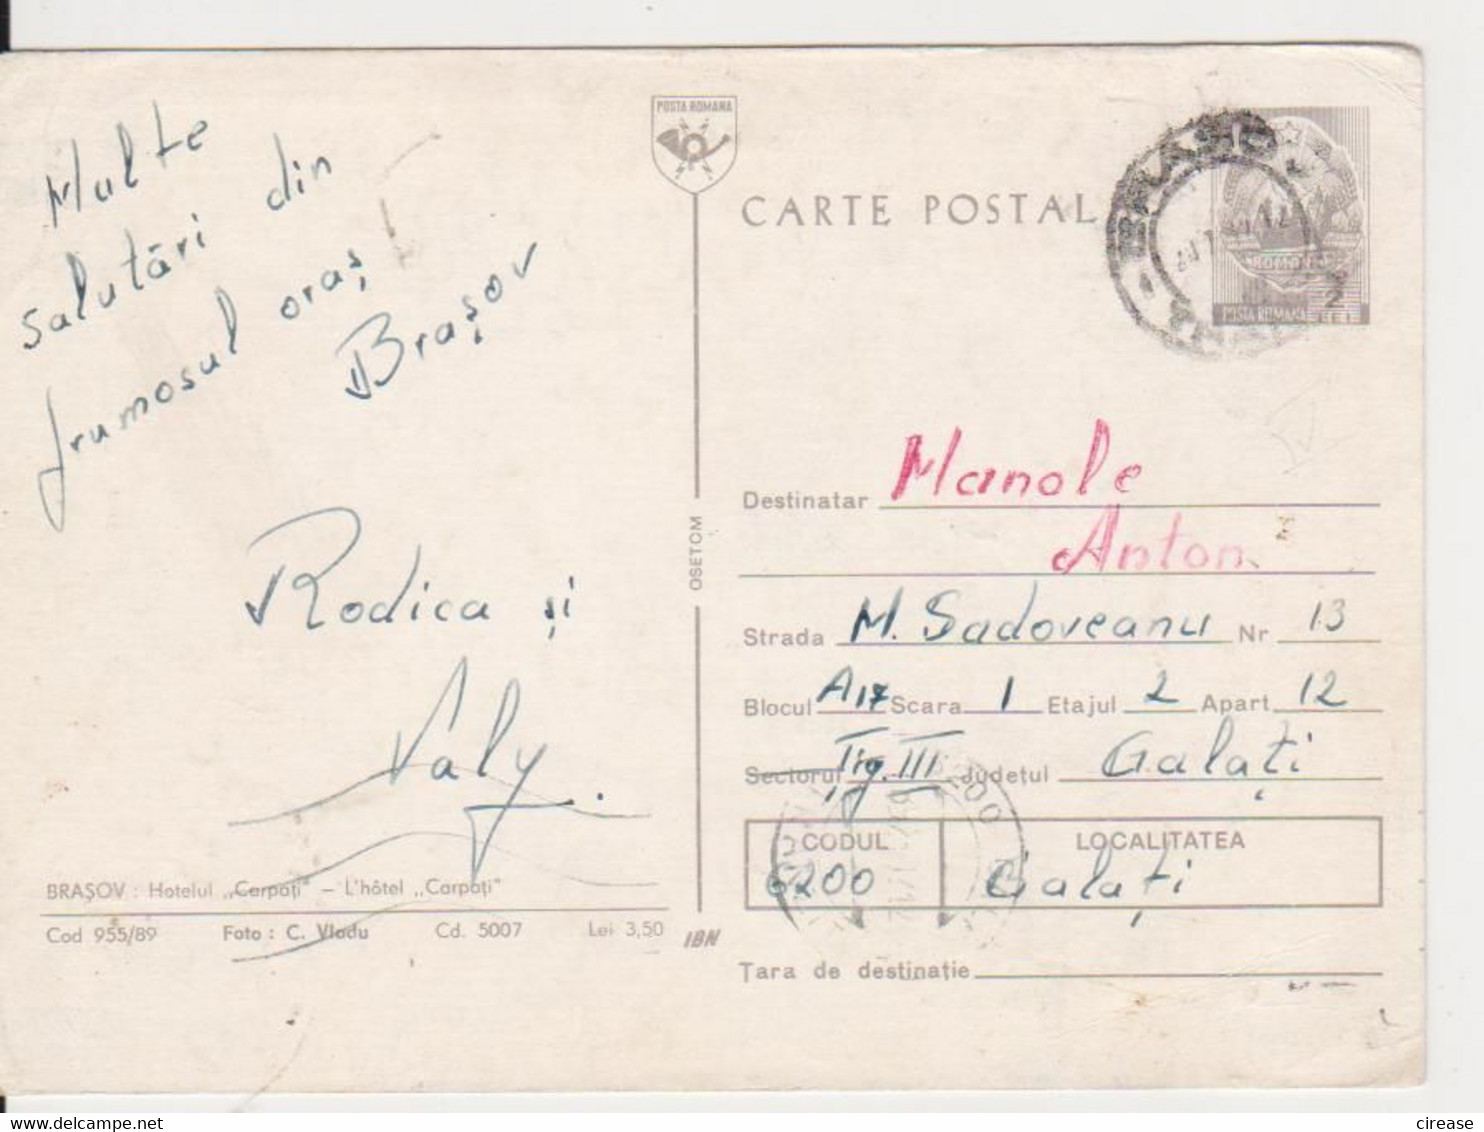 Multe
salutări din
frumosul oraș
Brașov
Rodica și
Valy.
BRAȘOV : Hotelul „Carpați” – L'hôtel „Carpați”
Cod 955/89 Foto : C. Vladu Cd. 5007 Lei 3,50
IBN
OSETOM
POSTA ROMANA
CARTE POSTAL
BRASO
ROMANIA
2
POSTA ROMANA LEI
Destinatar Manole
Anton
Strada M. Sadoveanu Nr 13
Blocul A17 Scara 1 Etajul 2 Apart 12
Sectorul Țig. III Județul Galați
CODUL LOCALITATEA
6200 Galați
Țara de destinație
www.delcampe.net cirease